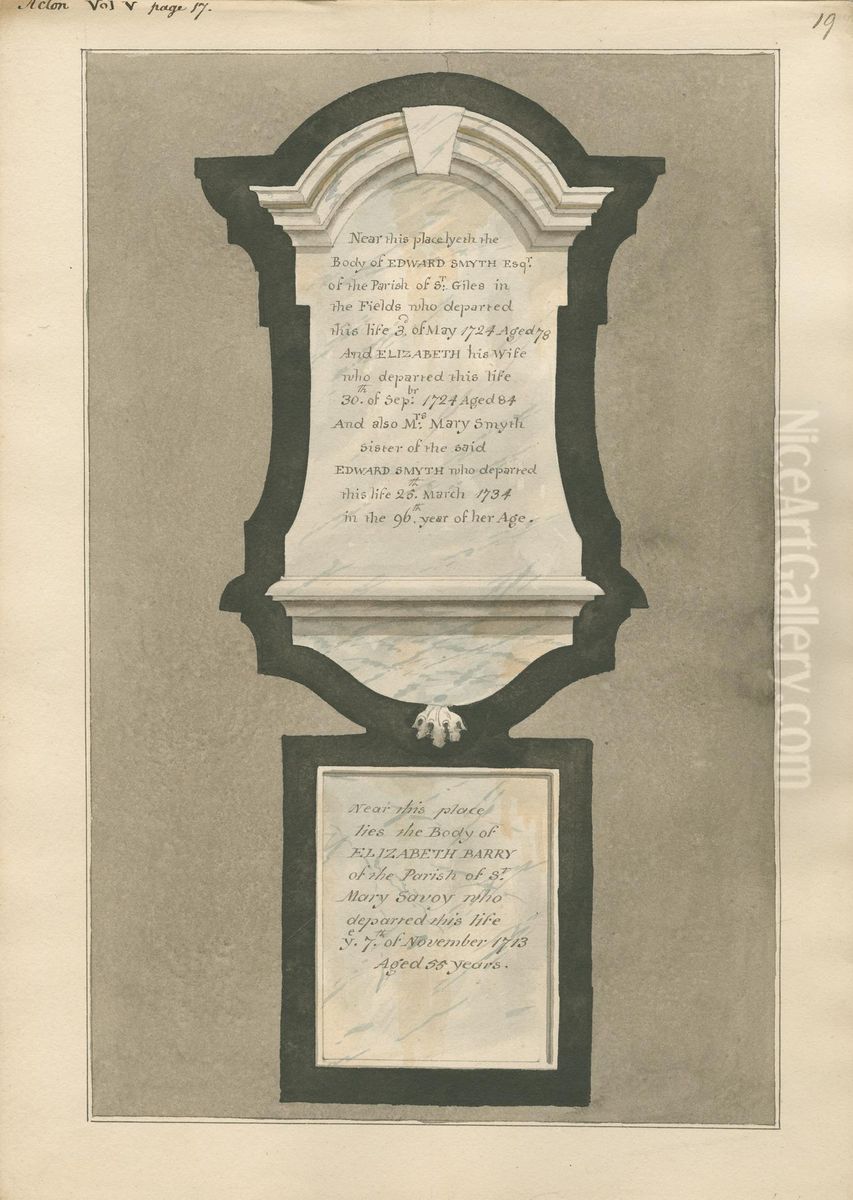 Acton Vol V page 17.
19
Near this place lyeth the
Body of EDWARD SMYTH Esqr.
of the Parish of St. Giles in
the Fields who departed
this life 3d. of May 1724 Aged 78
And ELIZABETH his Wife
who departed this life
30th. of Sepbr. 1724 Aged 84
And also Mrs. Mary Smyth
sister of the said
EDWARD SMYTH who departed
this life 25th. March 1734
in the 96th. year of her Age.
Near this place
lies the Body of
ELIZABETH BARRY
of the Parish of St.
Mary Savoy who
departed this life
ye. 7th. of November 1713
Aged 55 years.
NiceArtGallery.com